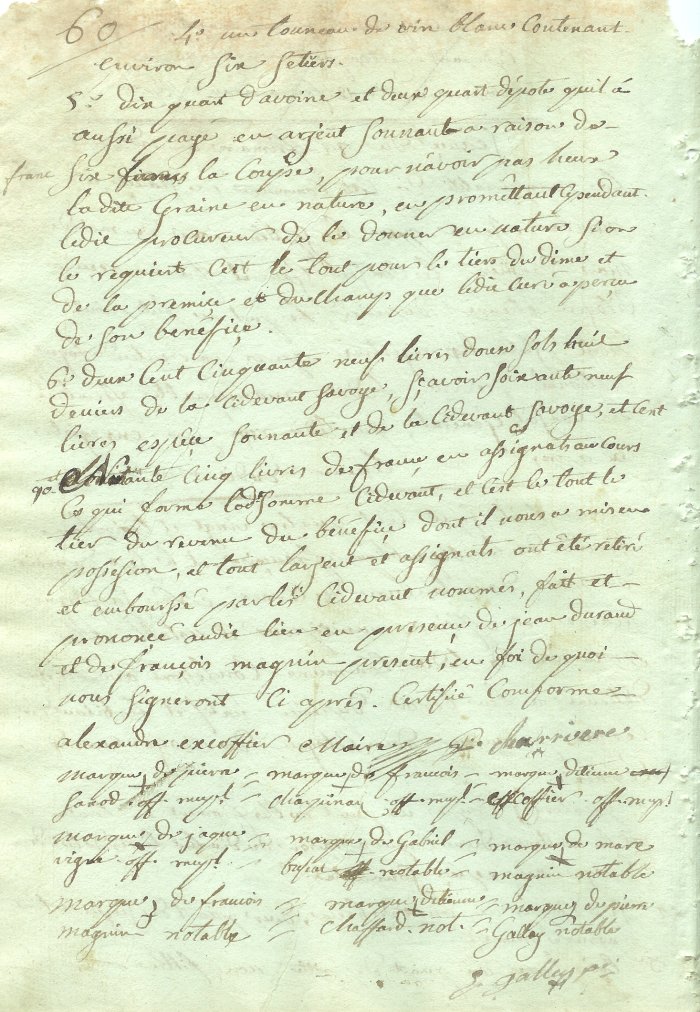 60 4° un tonneau de vin blanc Contenant
environ six setiers.
5° dix quart davoine et deux quart dépote quil à
aussi payé en arjent sonnant a raison de
franc six la Coupe, pour navoir pas heu
ladite Graine en nature, en promettant Cependant
ledit procureur de le donner en nature si on
le requiert C'est le tout pour le tiers du dime et
de la premiçe et du champ que ledit Curé a perçu
de son bénéfiçe.
6° deux Cent Cinquante neuf livres douze sols huit
deniers de la Cidevant Savoye, sçavoir soixante neuf
livres espéçe sonnante et de la Cidevant Savoye, et Cent
Cinq livres de france en assignat au Cours
Ce qui forme ladsomme Cidevant, et C'est le tout le
tier du revenu du bénéfiçe dont il nous a mis en
possésion, et tout larjent et assignats ont été retiré
et emboursé par les Cidevant nommés, fait et
prononcé audit lieu en presençe de jean durand
et de françois magnin present, en foi de quoi
nous signeront Ci après. Certifié Conforme
alexandre excoffier Maire charriere
marque de pierre marque de francois marque detienne
off. mupl. off. mupl. excoffier off. mupl
marque de jaque marque de Gabriel marque de marc
off. mupl. off notable magnin notable
marque de francois marque detienne marque de pierre
magnin notable Chaffard. not. Gallay notable
gallay